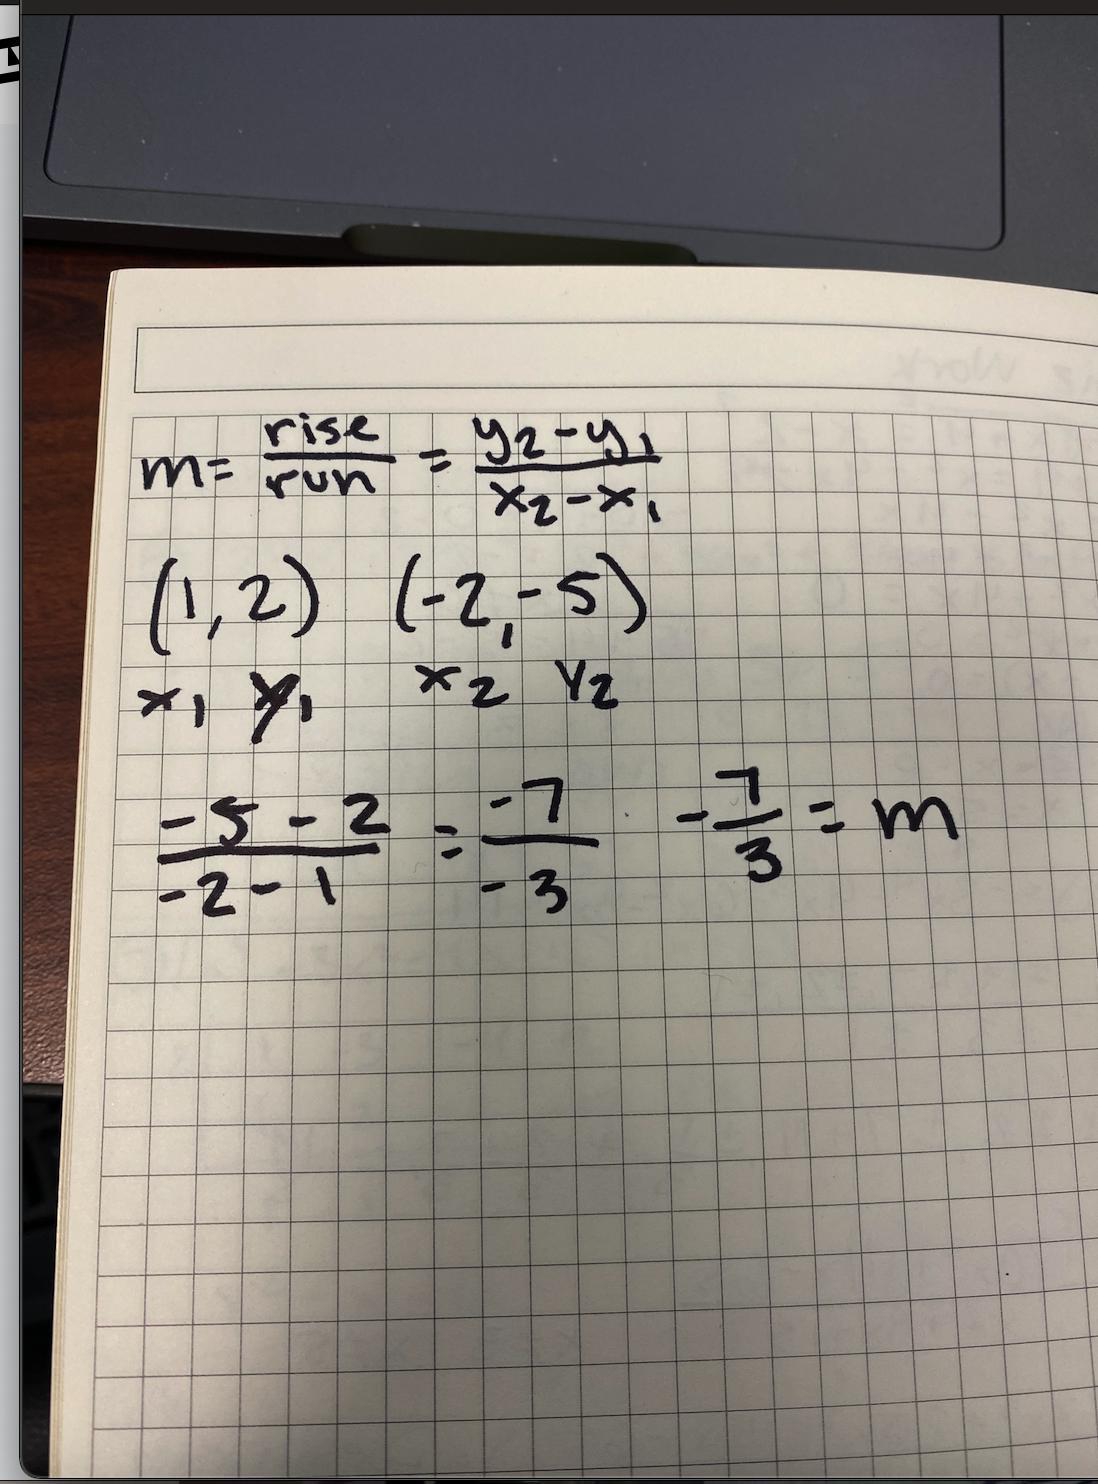 m = rise/run = y₂-y₁/x₂-x₁
(1, 2) (-2, -5)
x₁ y₁ x₂ y₂
-5 - 2/-2 - 1 = -7/-3 -7/3 = m